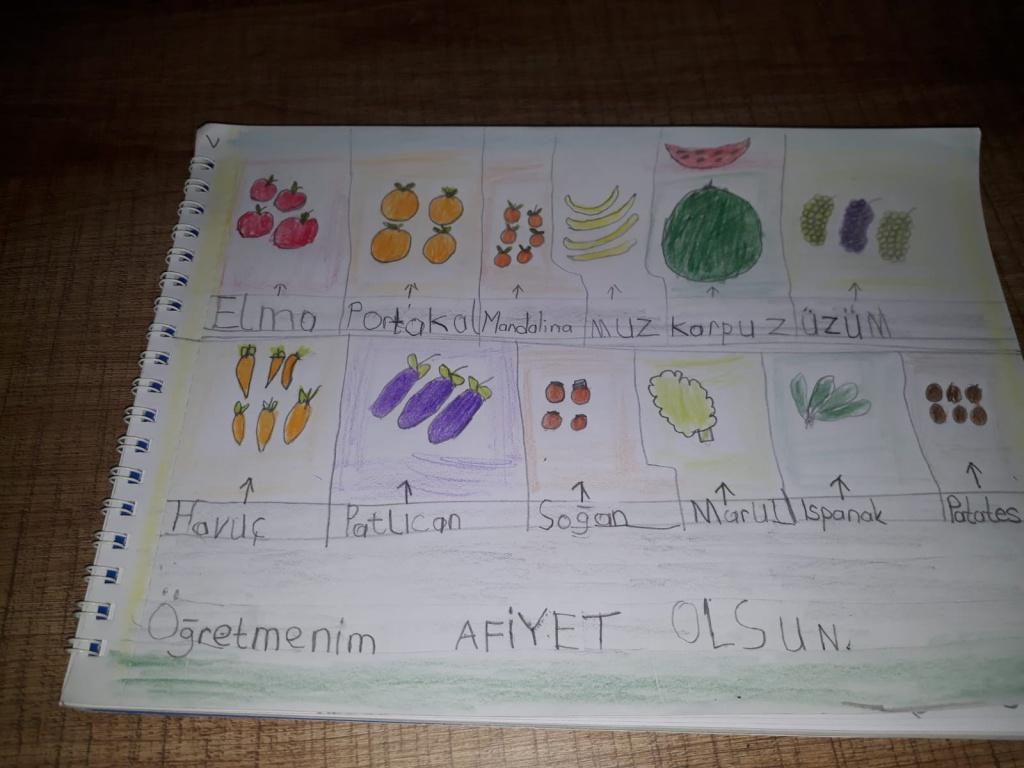 Elma Portakal Mandalina muz karpuz üzüm
Havuç Patlıcan Soğan Marul Ispanak Patates
Öğretmenim AFİYET OLSUN.